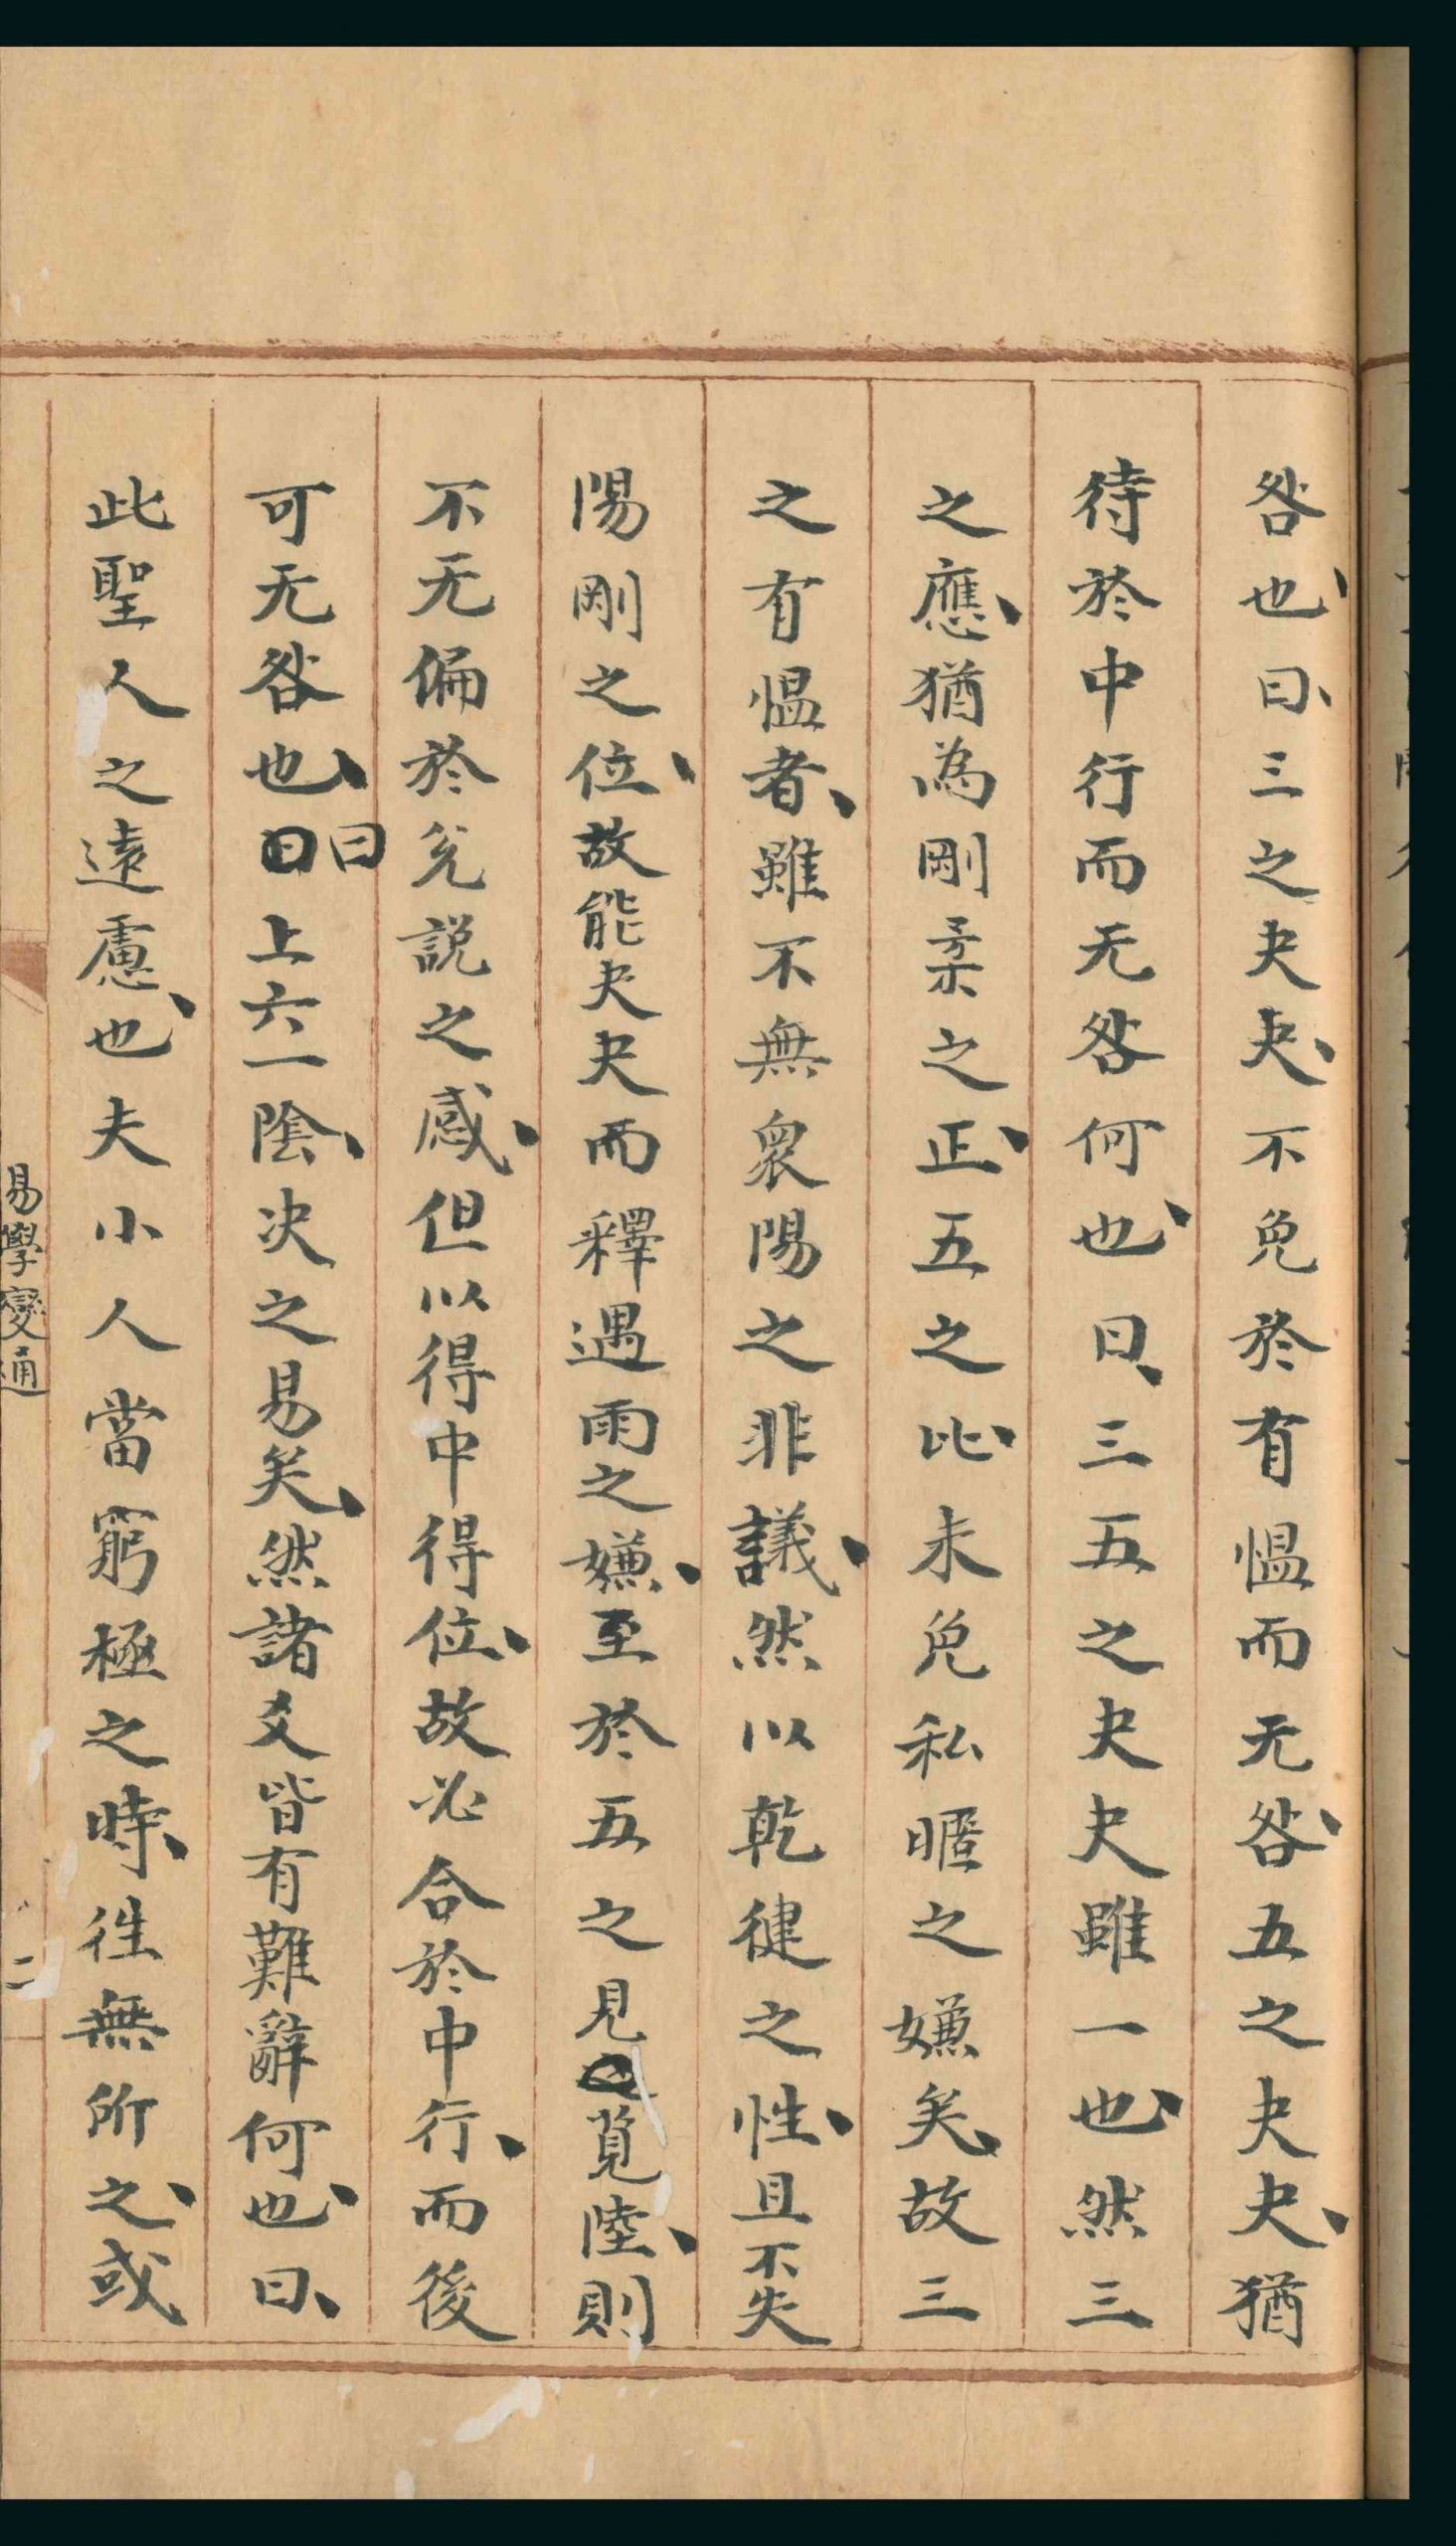 咎也曰三之夬夬不免於有愠而无咎五之夬夬猶
待於中行而无咎何也曰三五之夬夬雖一也然三
之應猶為剛柔之正五之比未免私暱之嫌矣故三
之有愠者雖不無衆陽之非議然以乾健之性且不失
陽剛之位故能夬夬而釋遇雨之嫌至於五之見莧陸則
不无偏於兌說之感但以得中得位故必合於中行而後
可无咎也曰上六一陰决之易矣然諸爻皆有難辭何也曰
此聖人之遠慮也夫小人當窮極之時徃無所之或
易學變通
二